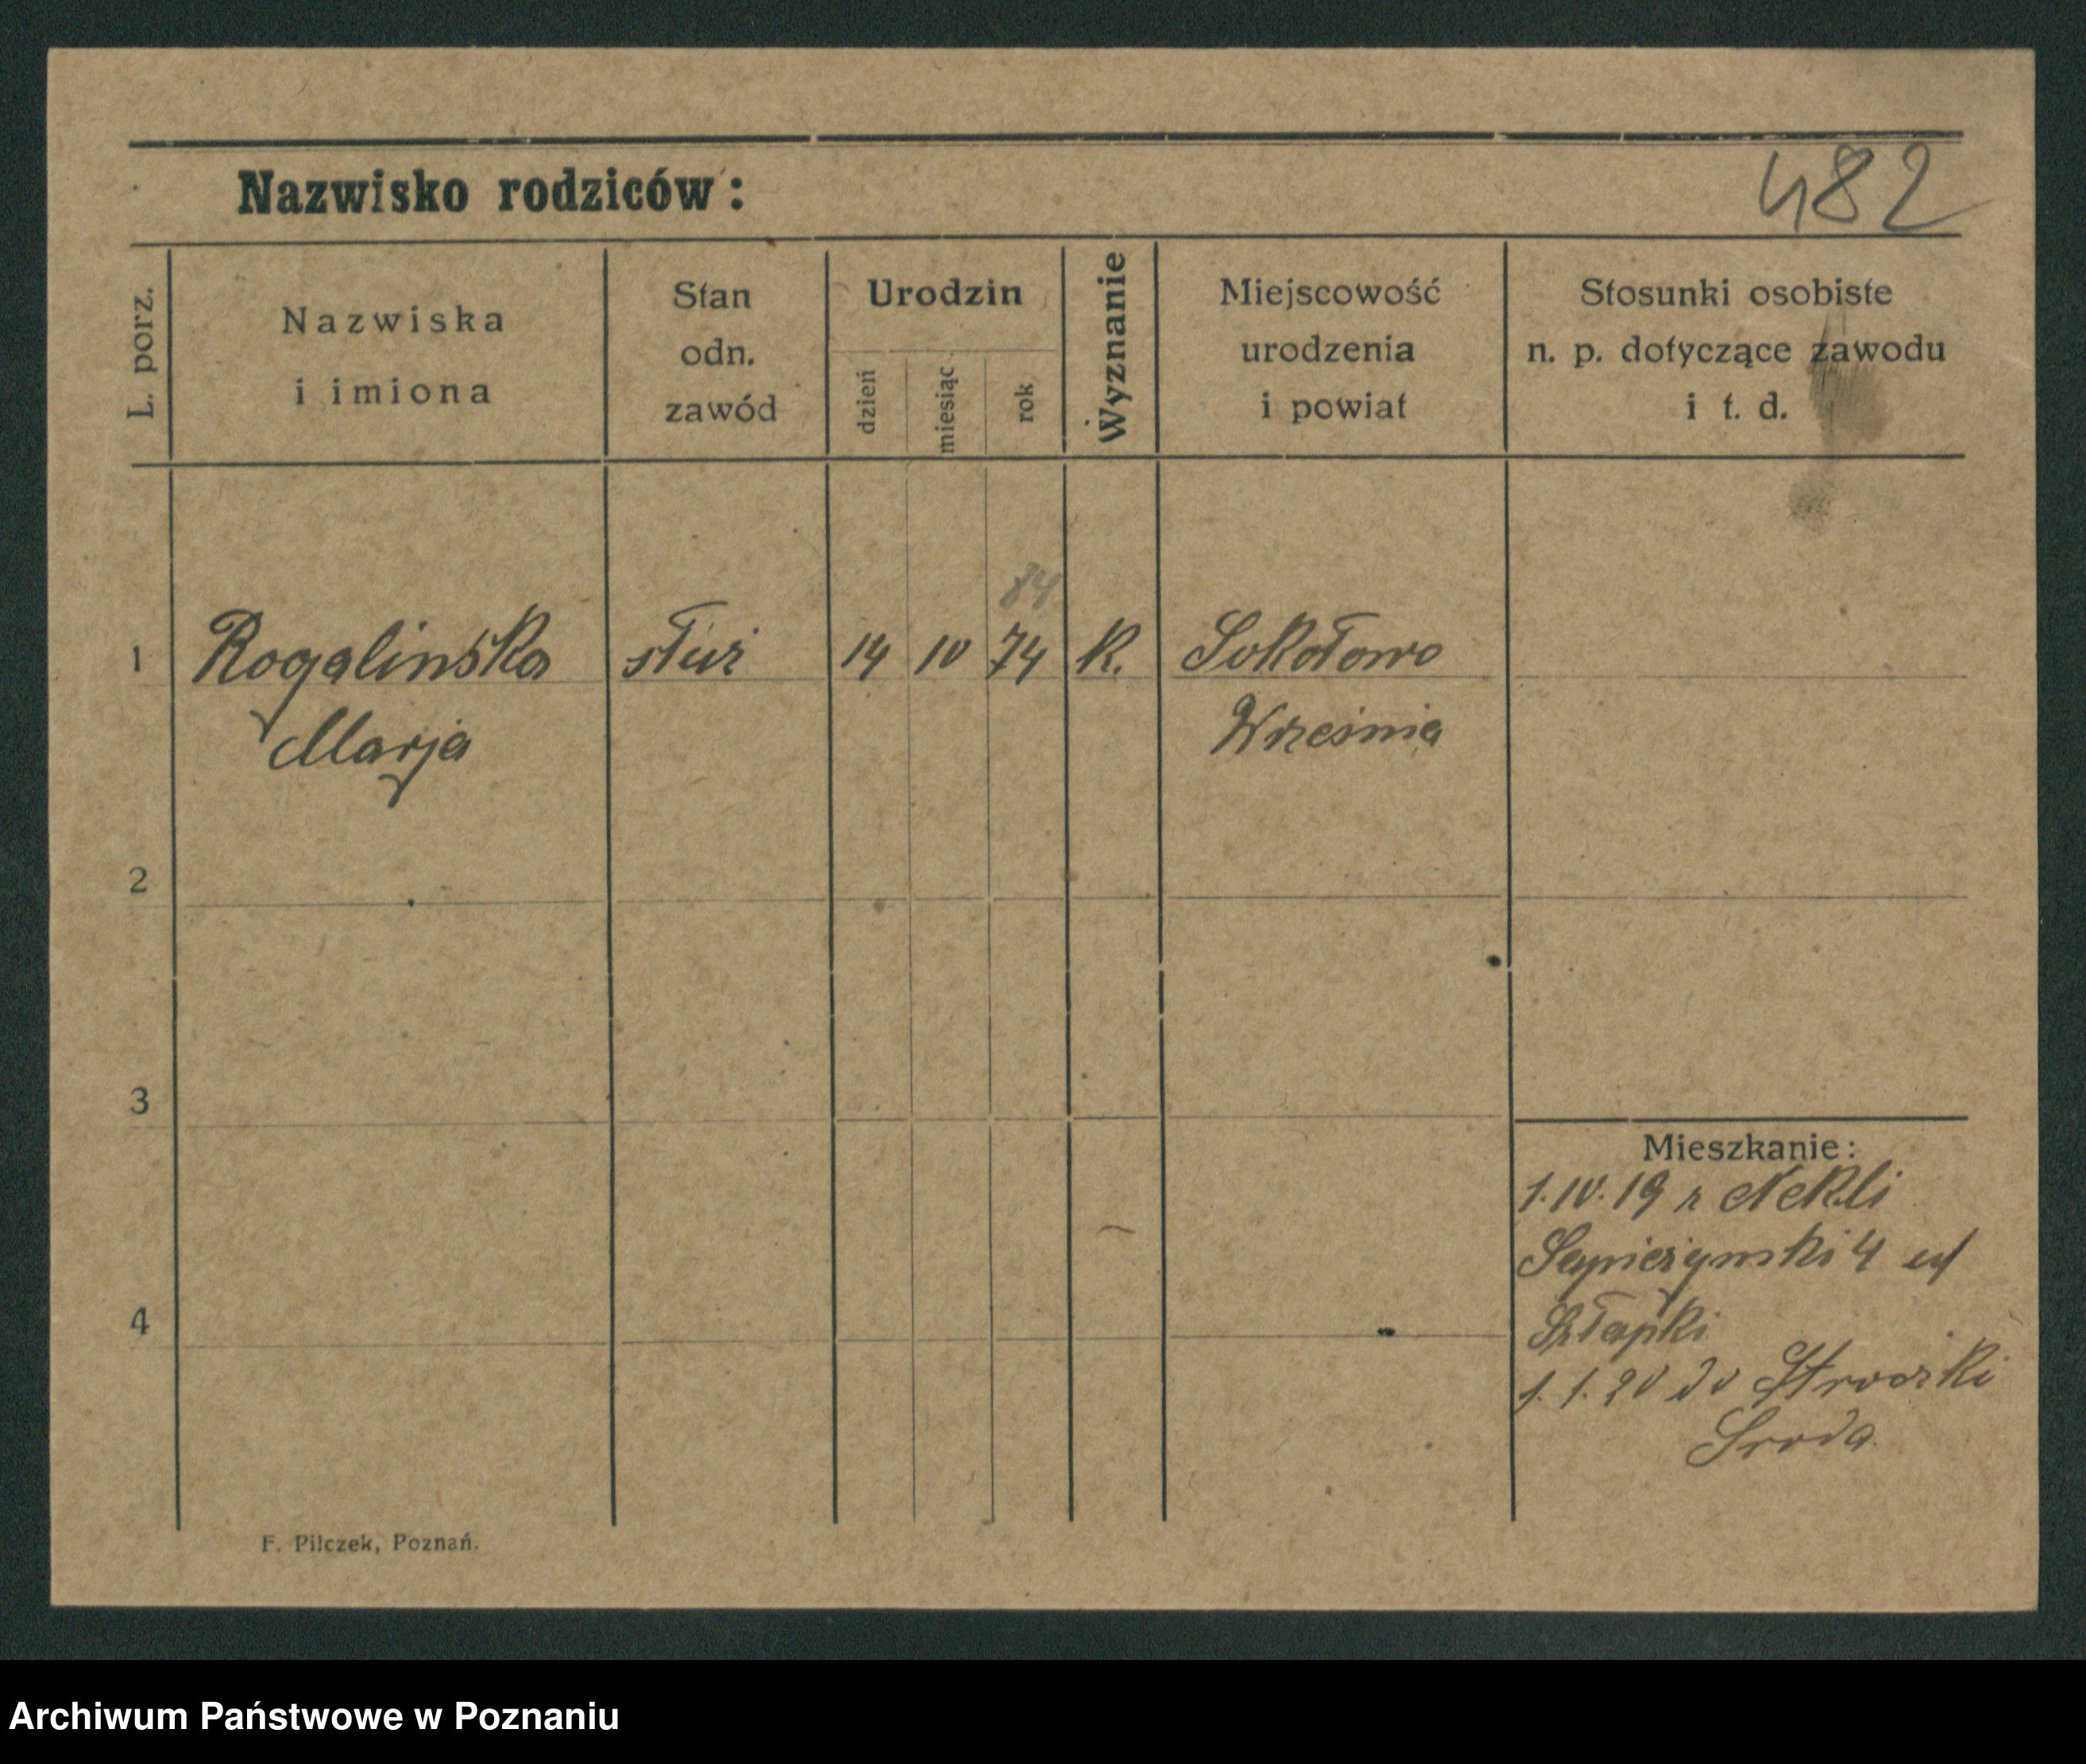 482
Nazwisko rodziców:
L. porz.
Nazwiska
i imiona
Stan
odn.
zawód
Urodzin
dzień
miesiąc
rok
Wyznanie
Miejscowość
urodzenia
i powiat
Stosunki osobiste
n. p. dotyczące zawodu
i t. d.
84
1 Rogalinska służ 14 10 74 K. Sokołowo
Marja Września
2
3
4
Mieszkanie:
1. IV. 19 z Nekli
Sapieżynski 4
Szłapki
1. 1. 20 do
Sroda
F. Pilczek, Poznań.
Archiwum Państwowe w Poznaniu